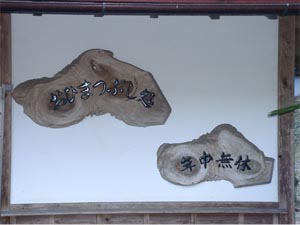 おひまつぶし処
年中無休